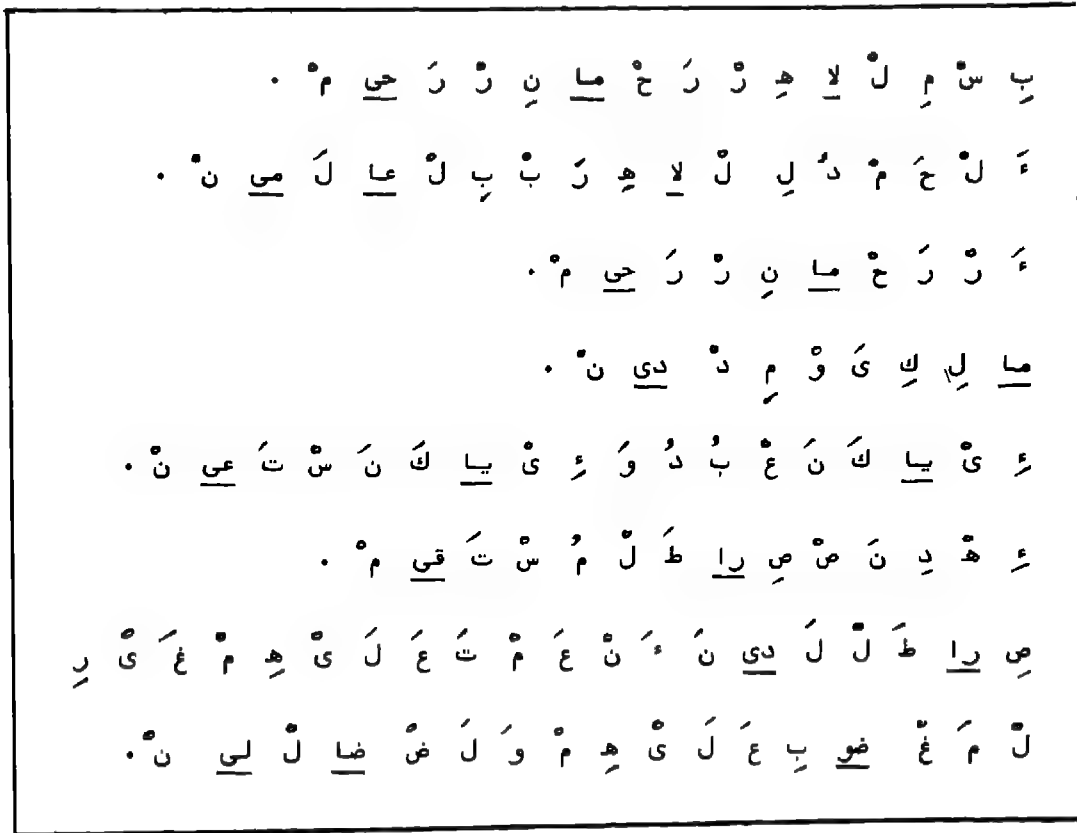 بِ سْ مِ لْ لا هِ رْ رَ حْ ما نِ رْ رَ حى مْ .
ءَ لْ حَ مْ دُ لِ لْ لا هِ رَ بْ بِ لْ عا لَ مى نْ .
ءَ رْ رَ حْ ما نِ رْ رَ حى مْ .
ما لِ كِ ىَ وْ مِ دْ دى نْ .
ءِ ىْ يا كَ نَ عْ بُ دُ وَ ءِ ىْ يا كَ نَ سْ تَ عى نْ .
ءِ هْ دِ نَ صْ صِ را طَ لْ مُ سْ تَ قى مْ .
صِ را طَ لْ لَ دى نَ ءَ نْ عَ مْ تَ عَ لَ ىْ هِ مْ غَ ىْ رِ
لْ مَ غْ ضو بِ عَ لَ ىْ هِ مْ وَ لَ ضْ ضا لْ لى نْ .